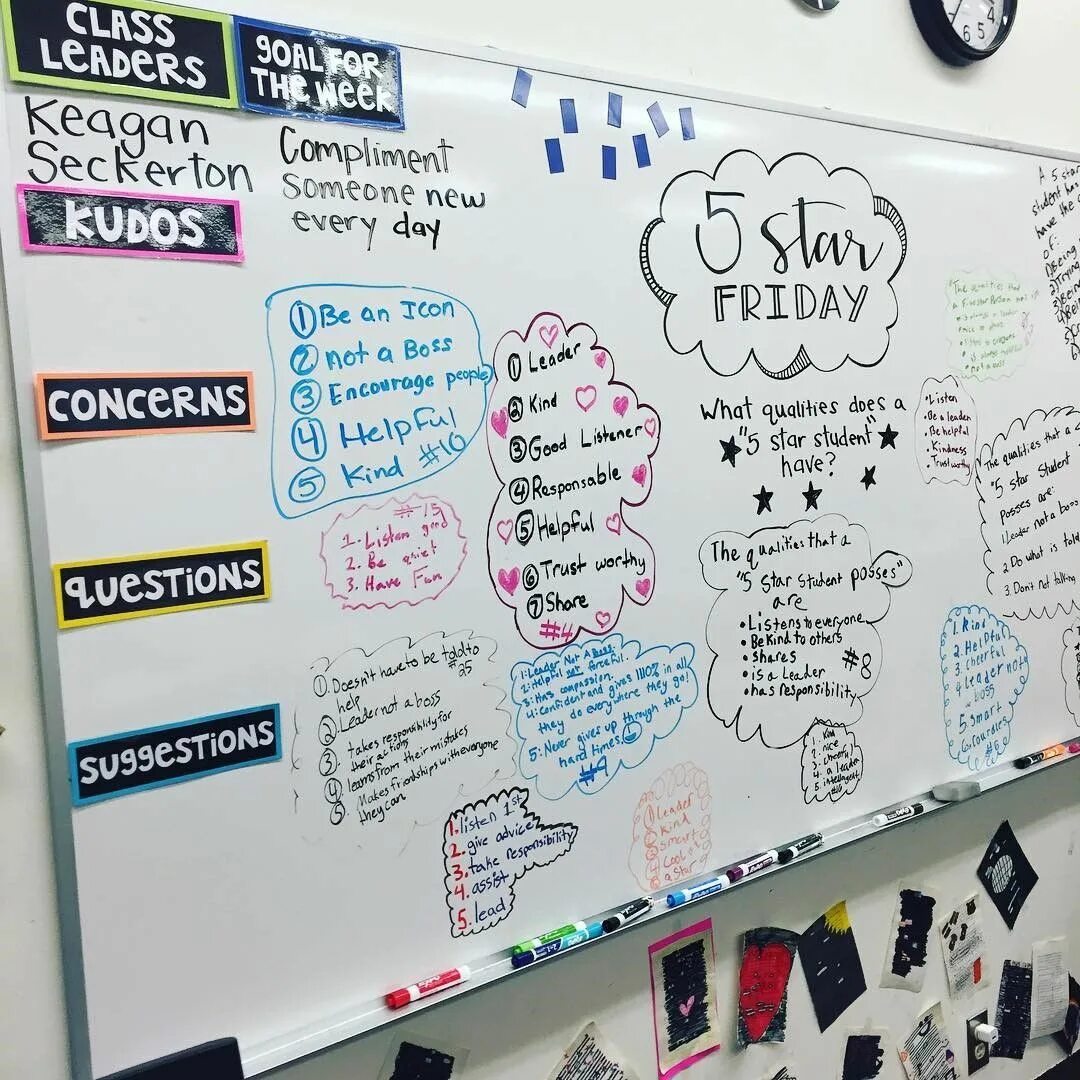 CLASS
LEADERS
GOAL FOR
THE WEEK
Keagan
Seckerton
Compliment
Someone new
every day
KUDOS
CONCERNS
QUESTIONS
SUGGESTIONS
5 star
FRIDAY
What qualities does a
"5 star student"
have?
① Be an Icon
② not a Boss
③ Encourage people
④ Helpful
⑤ Kind #10
① Leader
② Kind
③ Good Listener
④ Responsable
⑤ Helpful
⑥ Trust worthy
⑦ Share
#4
#15
1. Listen good
2. Be quiet
3. Have Fun
①. Doesn't have to be told to
help #25
② Leader not a boss
③ takes responsibility for
their actions
④ learns from their mistakes
⑤ Makes friendships with everyone
they can.
1: Leader Not A Boss.
2: Helpful not forceful.
3: Has compassion.
4: Confident and gives 110% in all
they do everywhere they go!
5: Never gives up through the
hard times.
#9
1. listen 1st
2. give advice
3. take responsibility
4. assist
5. lead
Leader
Kind
smart
Cool
a Star
The qualities that a
"5 Star Student posses"
are
• Listens to everyone
• Be Kind to others
• shares
• is a Leader
• has responsibility
#8
1. Kind
2. nice
3. cheerful
4. a leader
5. intelligent
The qualities that
• Listen
• Be a leader
• Be helpful
• Kindness
• Trust worthy
A 5 star
student has
have the
of:
1) Being
2) Trying
3) Being
The qualities that a
"5 Star Student
Posses are:
1 Leader not a boss
2 Do what is told
3. Don't not talking
1. Kind
2. Helpful
3. cheerful
4. Leader not a
boss
5. smart
#6
4
5
6